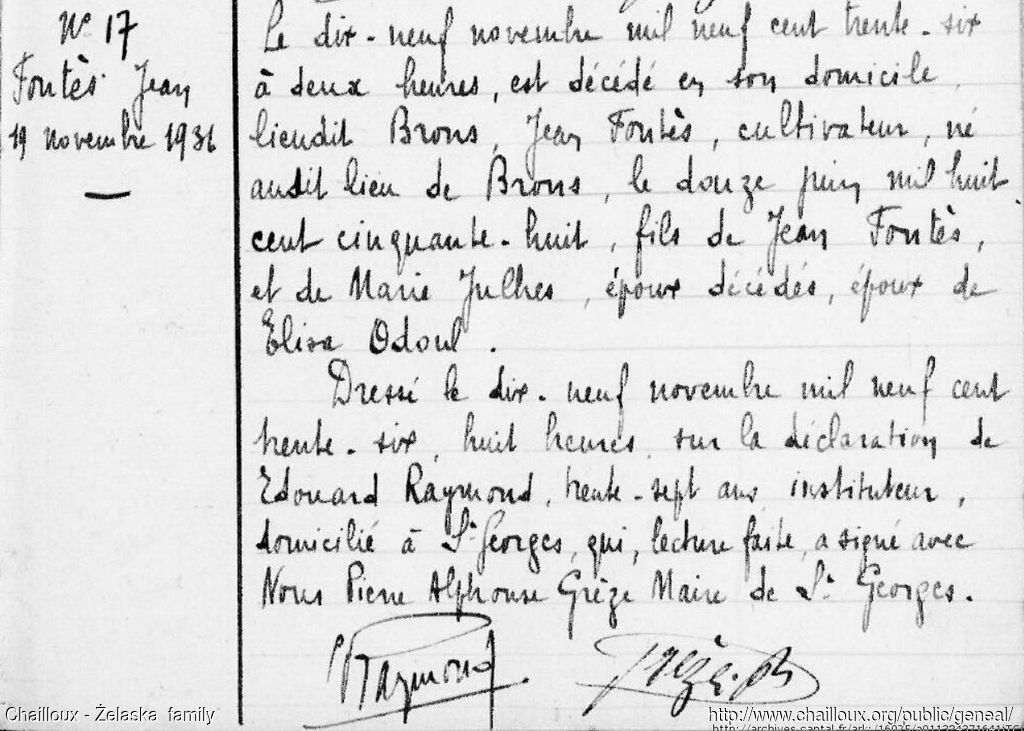 Nº 17
Fontès Jean
19 novembre 1936
Le dix-neuf novembre mil neuf cent trente-six
à deux heures, est décédé en son domicile
lieudit Brons, Jean Fontès, cultivateur, né
audit lieu de Brons, le douze juin mil huit
cent cinquante-huit, fils de Jean Fontès,
et de Marie Julhes, époux décédés, époux de
Elisa Odoul.
Dressé le dix-neuf novembre mil neuf cent
trente-six, huit heures, sur la déclaration de
Edouard Raymond, trente-sept ans, instituteur,
domicilié à St Georges, qui, lecture faite, a signé avec
Nous Pierre Alphonse Grèze Maire de St Georges.
Raymond
Grèze
Chailloux - Żelaska family
http://www.chailloux.org/public/geneal/